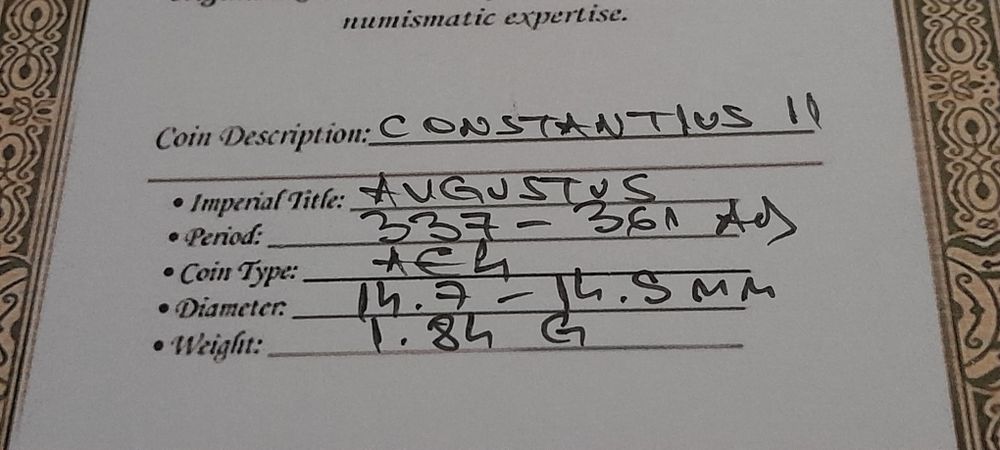 numismatic expertise.
Coin Description: CONSTANTIUS II
• Imperial Title: AUGUSTUS
• Period: 337 - 361 AD
• Coin Type: AE4
• Diameter: 14.7 - 14.5 MM
• Weight: 1.84 G